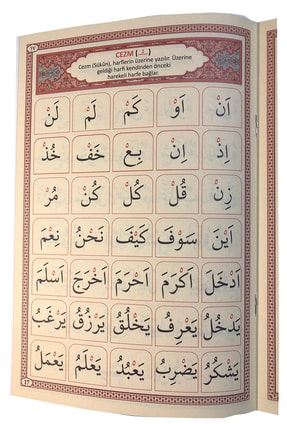 ١٦
CEZM (ـْـ)
Cezm (Sükûn), harflerin üzerine yazılır. Üzerine
geldiği harfi kendinden önceki
harekeli harfe bağlar.
اَنْ اَوْ كَمْ لَمْ لَنْ
اِذْ اِنْ بِعْ خَفْ خُذْ
زِنْ قُلْ كُلْ كُنْ مُرْ
اَيْنَ سَوْفَ كَيْفَ نَحْنُ نِعْمَ
اَدْخَلَ اَكْرَمَ اَحْرَمَ اَخْرَجَ اَسْلَمَ
يَدْخُلُ يَعْرِفُ يَخْلُقُ يَرْزُقُ يَرْغَبُ
يَشْكُرُ يَضْرِبُ يَعْبُدُ يَعْلَمُ يَعْمَلُ